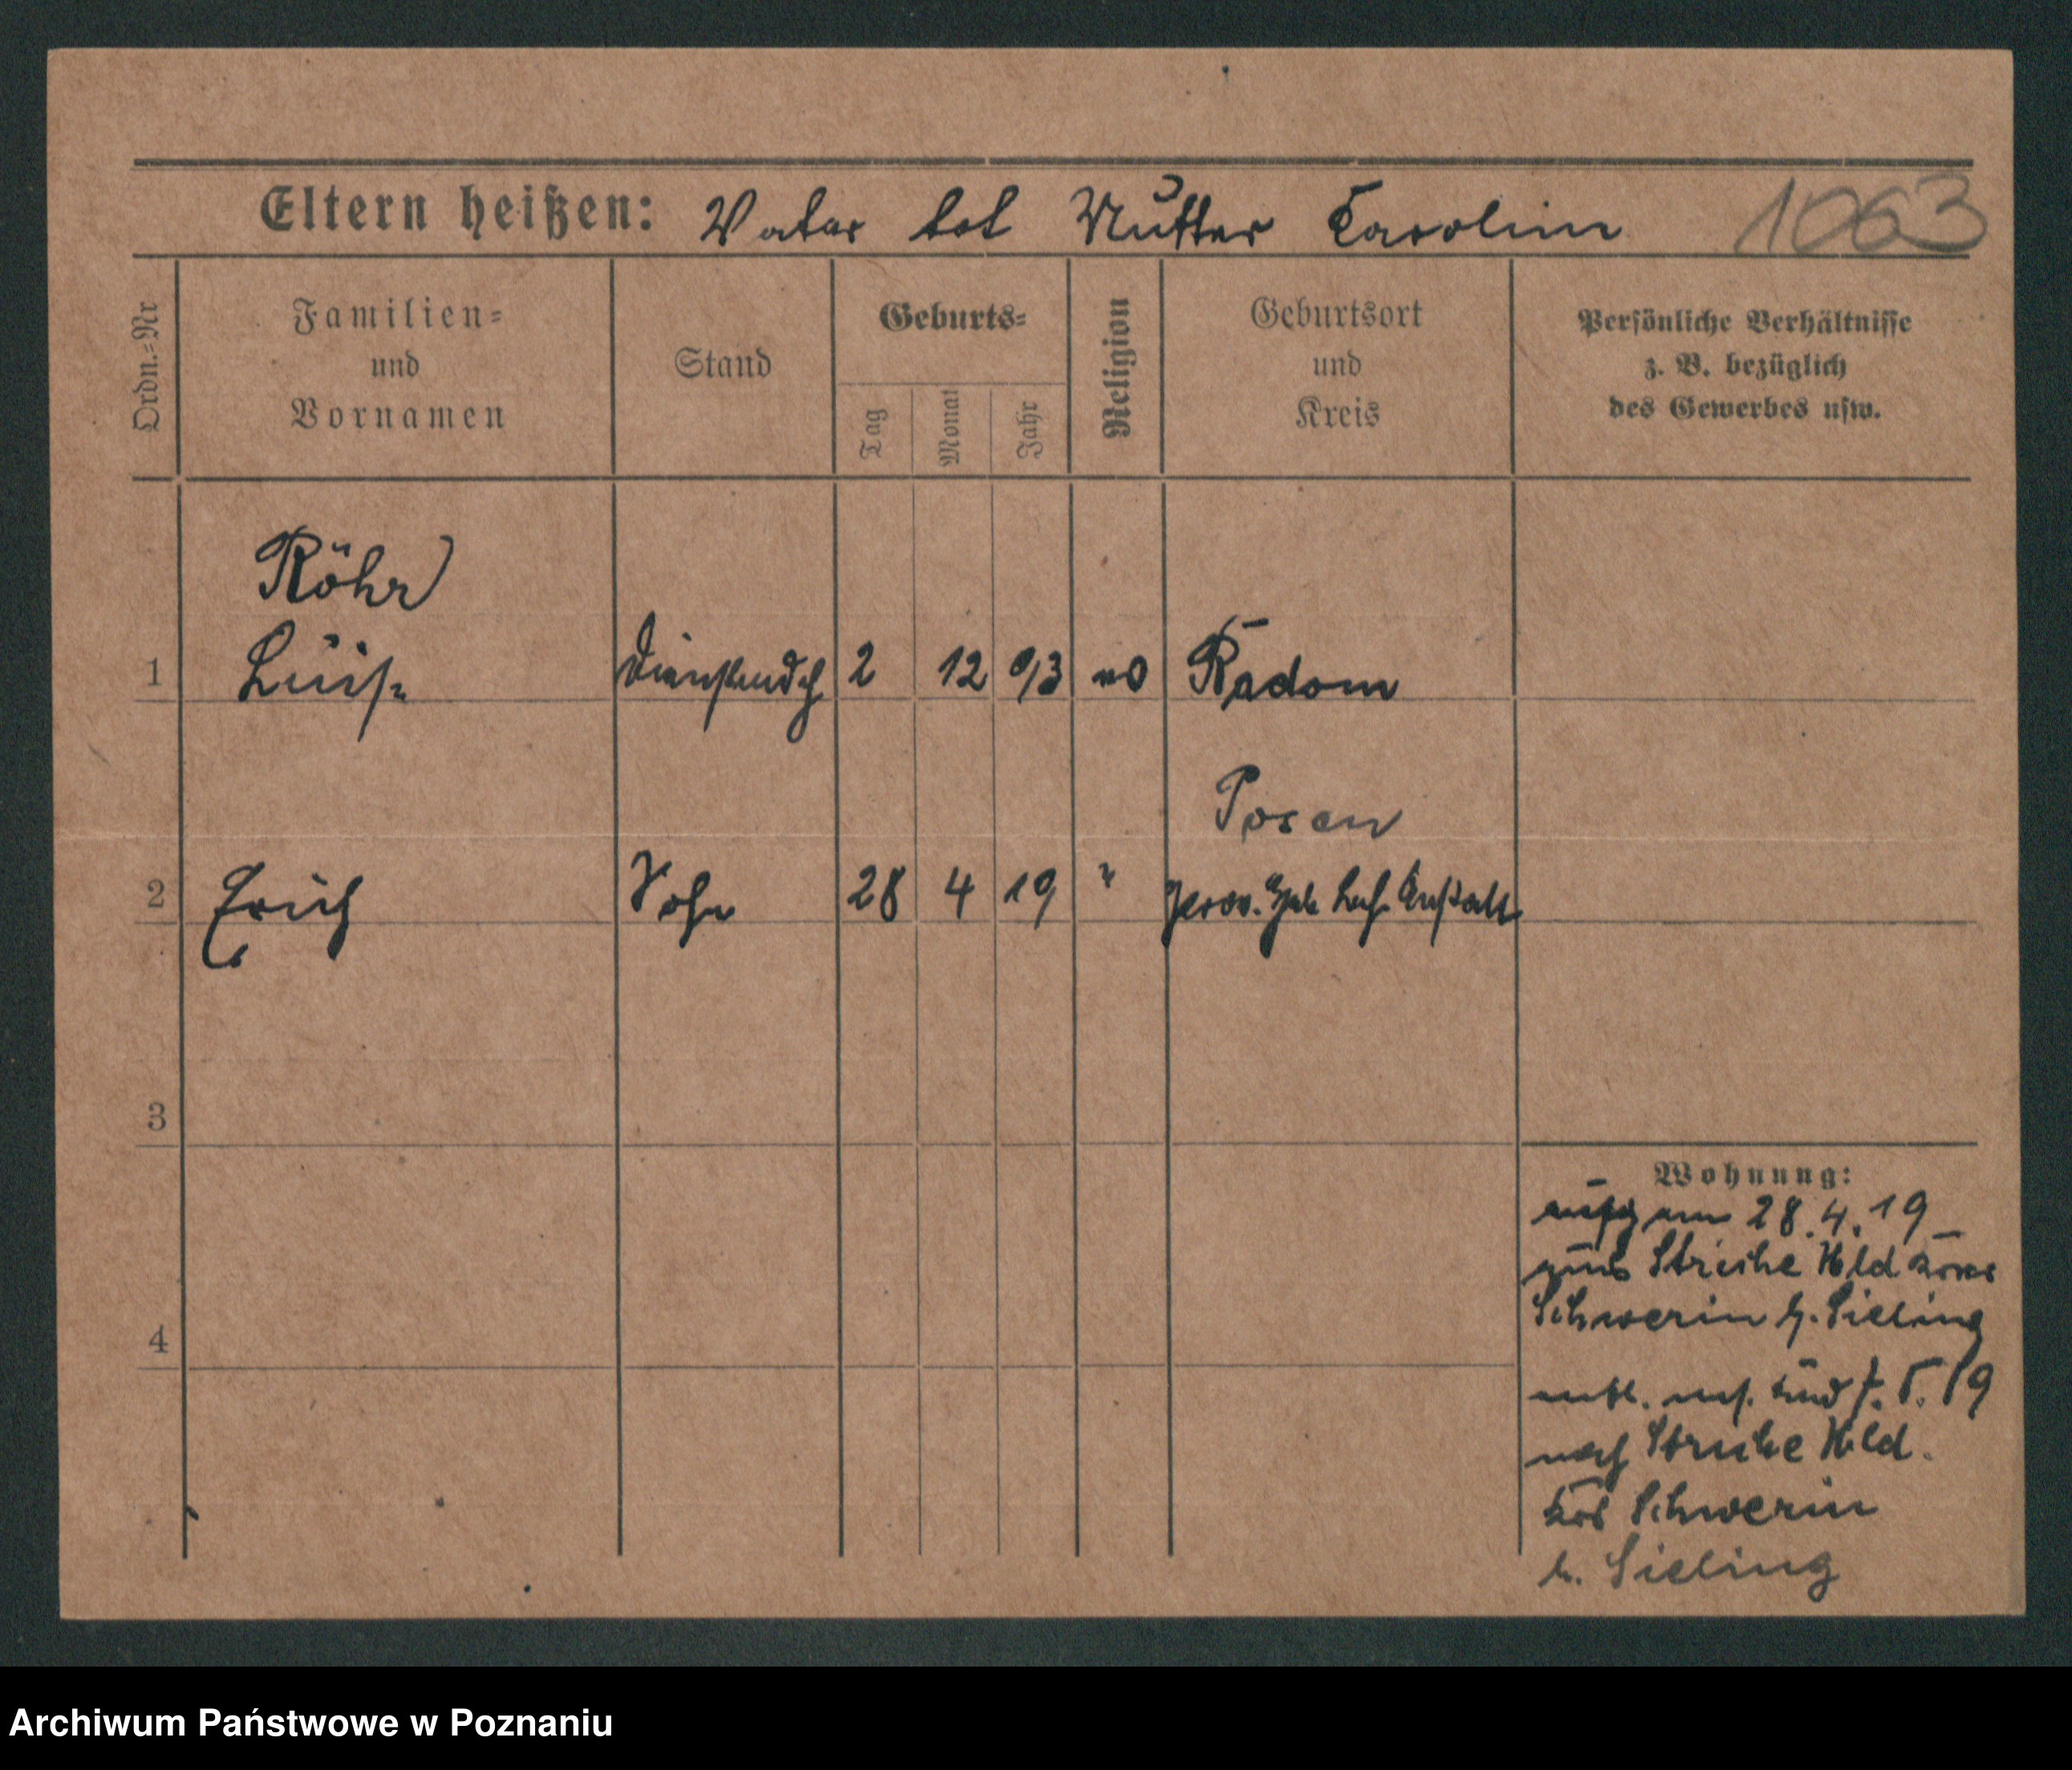 Eltern heißen: Vater tot Mutter Carolin 1063
Ordn.=Nr
Familien=
und
Vornamen
Stand
Geburts=
Tag
Monat
Jahr
Religion
Geburtsort
und
Kreis
Persönliche Verhältnisse
z. B. bezüglich
des Gewerbes usw.
Röhr
1 Luise 2 12 93 Radom
Posen
2 Erich Sohn 28 4 19 " Prov. Heb. Anstalt
3
4
Wohnung:
am 28.4.19
aus Hld
Schwerin b. Sieling
entl. Kind 7.5.19
nach Hld.
Schwerin
b. Sieling
Archiwum Państwowe w Poznaniu